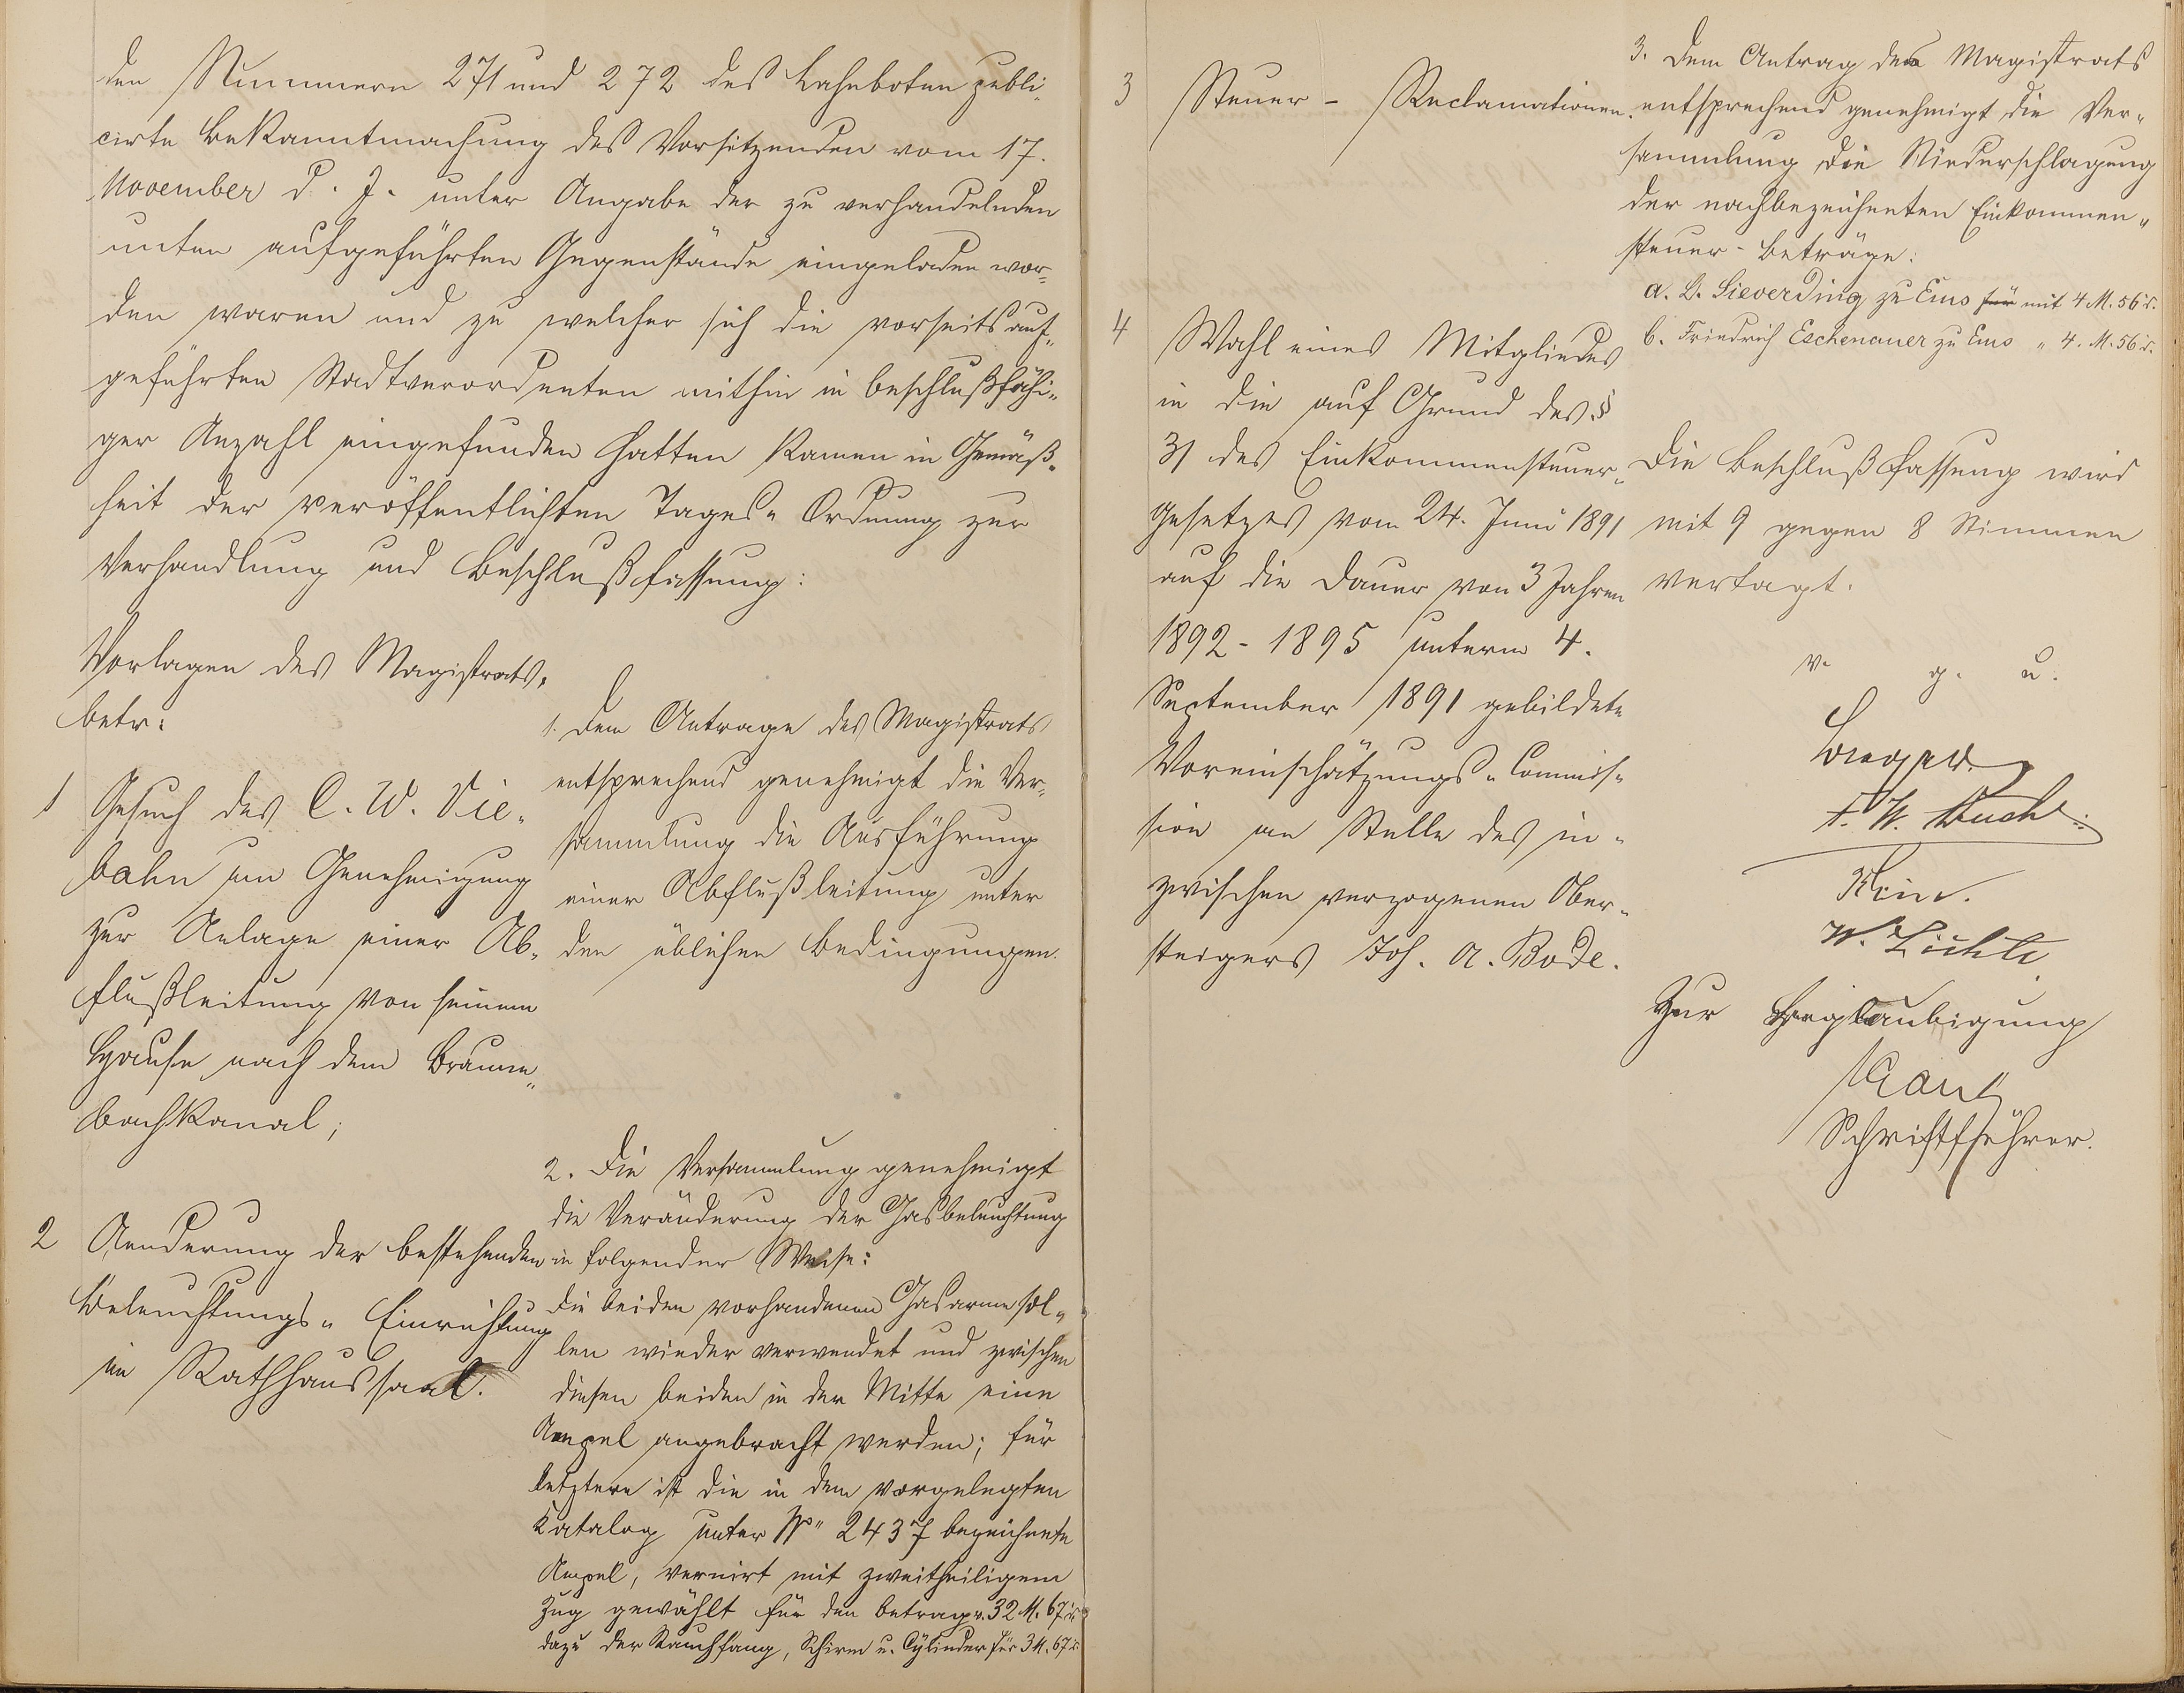 den Nummern 271 und 272 des Lahnboten publi„
cirte Bekanntmachung des Vorsitzenden vom 17.
November d. J. unter Angabe der zu verhandelnden
unten aufgeführten Gegenstände eingeladen wor„
den waren und zu welcher sich die vorseits auf„
geführten Stadtverordneten mithin in beschlußfähi„
ger Anzahl eingefunden hatten kamen in Gemäß„
heit der veröffentlichten Tages„Ordnung zur
Verhandlung und Beschlußfassung:
Vorlagen des Magistrats,
betr:
1 Gesuch des C. W. Vie„
bahn um Genehmigung
zur Anlage einer Ab„
flußleitung von seinem
Hause nach dem Braune„
bachkanal;
1. Dem Antrage des Magistrats
entsprechend genehmigt die Ver„
sammlung die Ausführung
einer Abflußleitung unter
den üblichen Bedingungen.
2 Aenderung der bestehenden
Beleuchtungs„Einrichtung
im Rathhaussaal.
2. Die Versammlung genehmigt
die Veränderung der Gasbeleuchtung
in folgender Weise:
Die beiden vorhandenen Gasarme sol„
len wieder verwendet und zwischen
diesen beiden in der Mitte eine
Ampel angebracht werden; für
letztere ist die in dem vorgelegten
Katalog unter No 2437 bezeichnete
Ampel, vernirt mit zweitheiligem
Zug gewählt für den Betrag v. 32 M. 67 d.
dazu der Rauchfang, Schirm u. Cylinder für 3 M. 67 d.
3 Steuer - Reclamationen.
3. Dem Antrag des Magistrats
entsprechend genehmigt die Ver„
sammlung die Niederschlagung
der nachbezeichneten Einkommen„
steuer-Beträge:
a. B. Sieverding zu Ems für mit 4 M. 56 d.
b. Friedrich Eschenauer zu Ems „ 4. M. 56 d.
4 Wahl eines Mitgliedes
in die auf Grund des §
31 des Einkommensteuer„
Gesetzes vom 24. Juni 1891
auf die Dauer von 3 Jahren
1892 - 1895 unterm 4.
September 1891 gebildete
Voreinschätzungs„Commis„
sion an Stelle des in„
zwischen verzogenen Ober„
steigers Joh. A. Bode.
Die Beschlußfassung wird
mit 9 gegen 8 Stimmen
vertagt.
v. g. u.
W. Lichti
Zur Beglaubigung
Schriftführer.